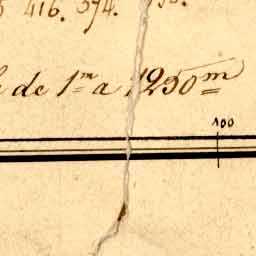 416. 574.
de 1m a 1250m
100